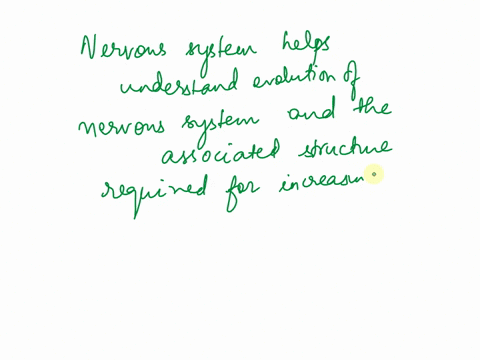 Nervous system helps
understand evolution of
nervous system and the
associated structure
required for increasin